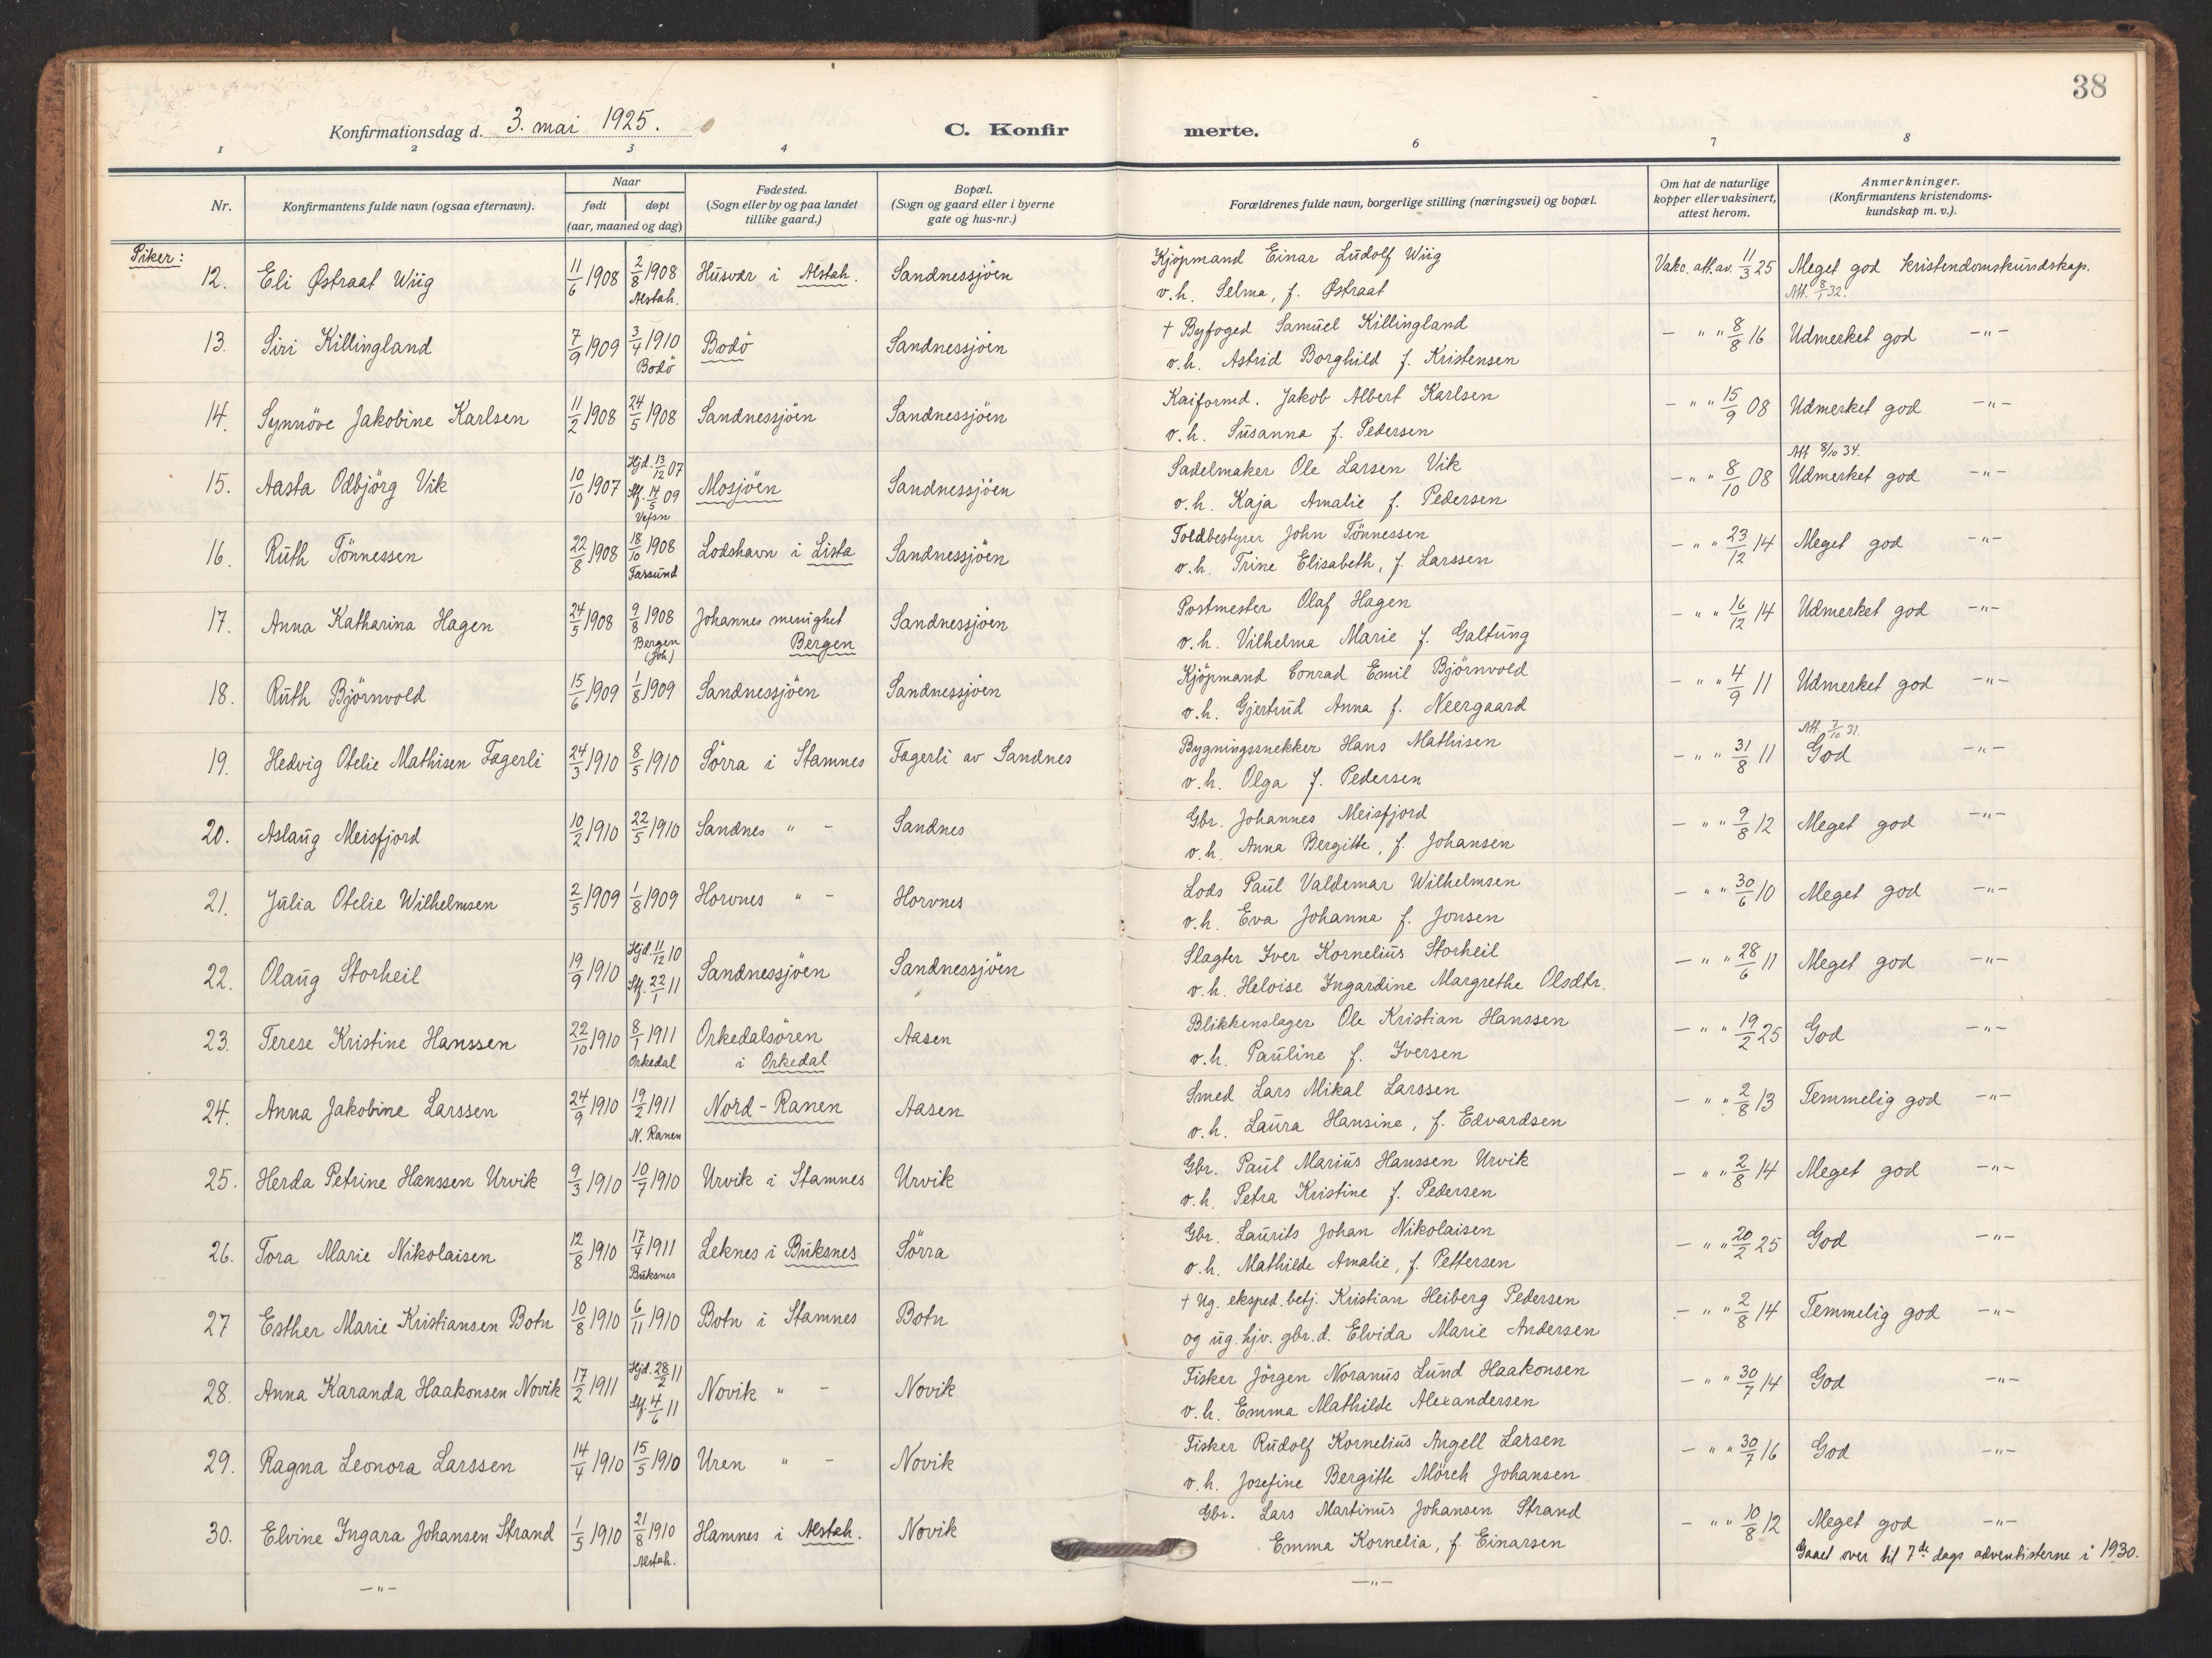 38
Konfirmationsdag d. 3. mai 1925.
C. Konfirmerte.
1 2 3 4 6 7 8
Nr.
Konfirmantens fulde navn (ogsaa efternavn).
Naar
født
døpt
(aar, maaned og dag)
Fødested.
(Sogn eller by og paa landet
tillike gaard.)
Bopæl.
(Sogn og gaard eller i byerne
gate og hus-nr.)
Forældrenes fulde navn, borgerlige stilling (næringsvei) og bopæl.
Om hat de naturlige
kopper eller vaksinert,
attest herom.
Anmerkninger.
(Konfirmantens kristendoms-
kundskap m. v.).
Piker:
12. Eli Østraat Wiig 11/6 1908 2/8 1908 Alstah. Husvær i Alstah. Sandnessjöen
Kjöpmand Einar Ludolf Wiig
v.h. Selma, f. Østraat
Vakc. att. av. 11/3 25 Meget god kristendomskundskap.
Att. 8/1 32.
13. Siri Killingland 7/9 1909 3/4 1910 Bodö Bodö Sandnessjöen
† Byfoged Samuel Killingland
v.h. Astrid Borghild f. Kristensen
– " " 8/8 16 Udmerket god –"–
14. Synnöve Jakobine Karlsen 11/2 1908 24/5 1908 Sandnessjöen Sandnessjöen
Kaiformd. Jakob Albert Karlsen
v.h. Susanna f. Pedersen
– " " 15/9 08 Udmerket god –"–
15. Aasta Odbjörg Vik 10/10 1907 Hjd. 13/12 07 Stf. 14/5 09 Vefsn Mosjöen Sandnessjöen
Sadelmaker Ole Larsen Vik
v.h. Kaja Amalie f. Pedersen
– " " 8/10 08 Att 8/10 34. Udmerket god –"–
16. Ruth Tönnessen 22/8 1908 18/10 1908 Farsund Lodshavn i Lista Sandnessjöen
Toldbestyrer John Tönnessen
v.h. Trine Elisabeth, f. Larssen
– " " 23/12 14 Meget god –"–
17. Anna Katharina Hagen 24/5 1908 9/8 1908 Bergen (Joh) Johannes menighet Bergen Sandnessjöen
Postmester Olaf Hagen
v.h. Vilhelma Marie f. Galtung
– " " 16/12 14 Udmerket god –"–
18. Ruth Björnvold 15/6 1909 1/8 1909 Sandnessjöen Sandnessjöen
Kjöpmand Conrad Emil Björnvold
v.h. Gjertrud Anna f. Neergaard
– " " 4/9 11 Udmerket god –"–
19. Hedvig Otelie Mathisen Fagerli 24/3 1910 8/5 1910 Sörra i Stamnes Fagerli av Sandnes
Bygningssnekker Hans Mathisen
v.h. Olga f. Pedersen
– " " 31/8 11 Att. 7/10 31. God –"–
20. Aslaug Meisfjord 10/2 1910 22/5 1910 Sandnes " – Sandnes
Gbr. Johannes Meisfjord
v.h. Anna Bergitte, f. Johansen
– " " 9/8 12 Meget god –"–
21. Julia Otelie Wilhelmsen 2/5 1909 1/8 1909 Horvnes " – Horvnes
Lods Paul Valdemar Wilhelmsen
v.h. Eva Johanna f. Jonsen
– " " 30/6 10 Meget god –"–
22. Olaug Storheil 19/9 1910 Hjd. 11/12 10 Stf. 22/1 11 Sandnessjöen Sandnessjöen
Slagter Iver Kornelius Storheil
v.h. Heloise Ingardine Margrethe Olsdtr.
– " " 28/6 11 Meget god –"–
23. Terese Kristine Hanssen 22/10 1910 8/1 1911 Orkedal Orkedalsören i Orkedal Aasen
Blikkenslager Ole Kristian Hanssen
v.h. Pauline f. Iversen
– " " 19/2 25 God –"–
24. Anna Jakobine Larssen 24/9 1910 19/2 1911 N. Ranen Nord-Ranen Aasen
Smed Lars Mikal Larssen
v.h. Laura Hansine, f. Edvardsen
– " " 2/8 13 Temmelig god –"–
25. Herda Petrine Hanssen Urvik 9/3 1910 10/7 1910 Urvik i Stamnes Urvik
Gbr. Paul Marius Hanssen Urvik
v.h. Petra Kristine f. Pedersen
– " " 2/8 14 Meget god –"–
26. Tora Marie Nikolaisen 12/8 1910 17/4 1911 Buksnes Leknes i Buksnes Sörra
Gbr. Laurits Johan Nikolaisen
v.h. Mathilde Amalie, f. Pettersen
– " " 20/2 25 God –"–
27 Esther Marie Kristiansen Botn 10/8 1910 6/11 1910 Botn i Stamnes Botn
† Ug. eksped. betj. Kristian Heiberg Pedersen
og ug. hjv. gbr. d. Elvida Marie Andersen
– " " 2/8 14 Temmelig god –"–
28. Anna Karanda Haakonsen Novik 17/2 1911 Hjd. 28/2 11 Stf. 4/6 11 Novik " – Novik
Fisker Jörgen Noranus Lund Haakonsen
v.h. Emma Mathilde Alexandersen
– " " 30/7 14 God –"–
29. Ragna Leonora Larssen 14/4 1910 15/5 1910 Uren " – Novik
Fisker Rudolf Kornelius Angell Larsen
v.h. Josefine Bergitte Mörch Johansen
– " " 30/7 16 God –"–
30. Elvine Ingara Johansen Strand 1/5 1910 21/8 1910 Alstah. Hamnes i Alstah. Novik
Gbr. Lars Martinus Johansen Strand
Emma Kornelia, f. Einarsen
– " " 10/8 12 Meget god –"–
Gaaet over til 7de dags adventisterne i 1930.
–"– –"–